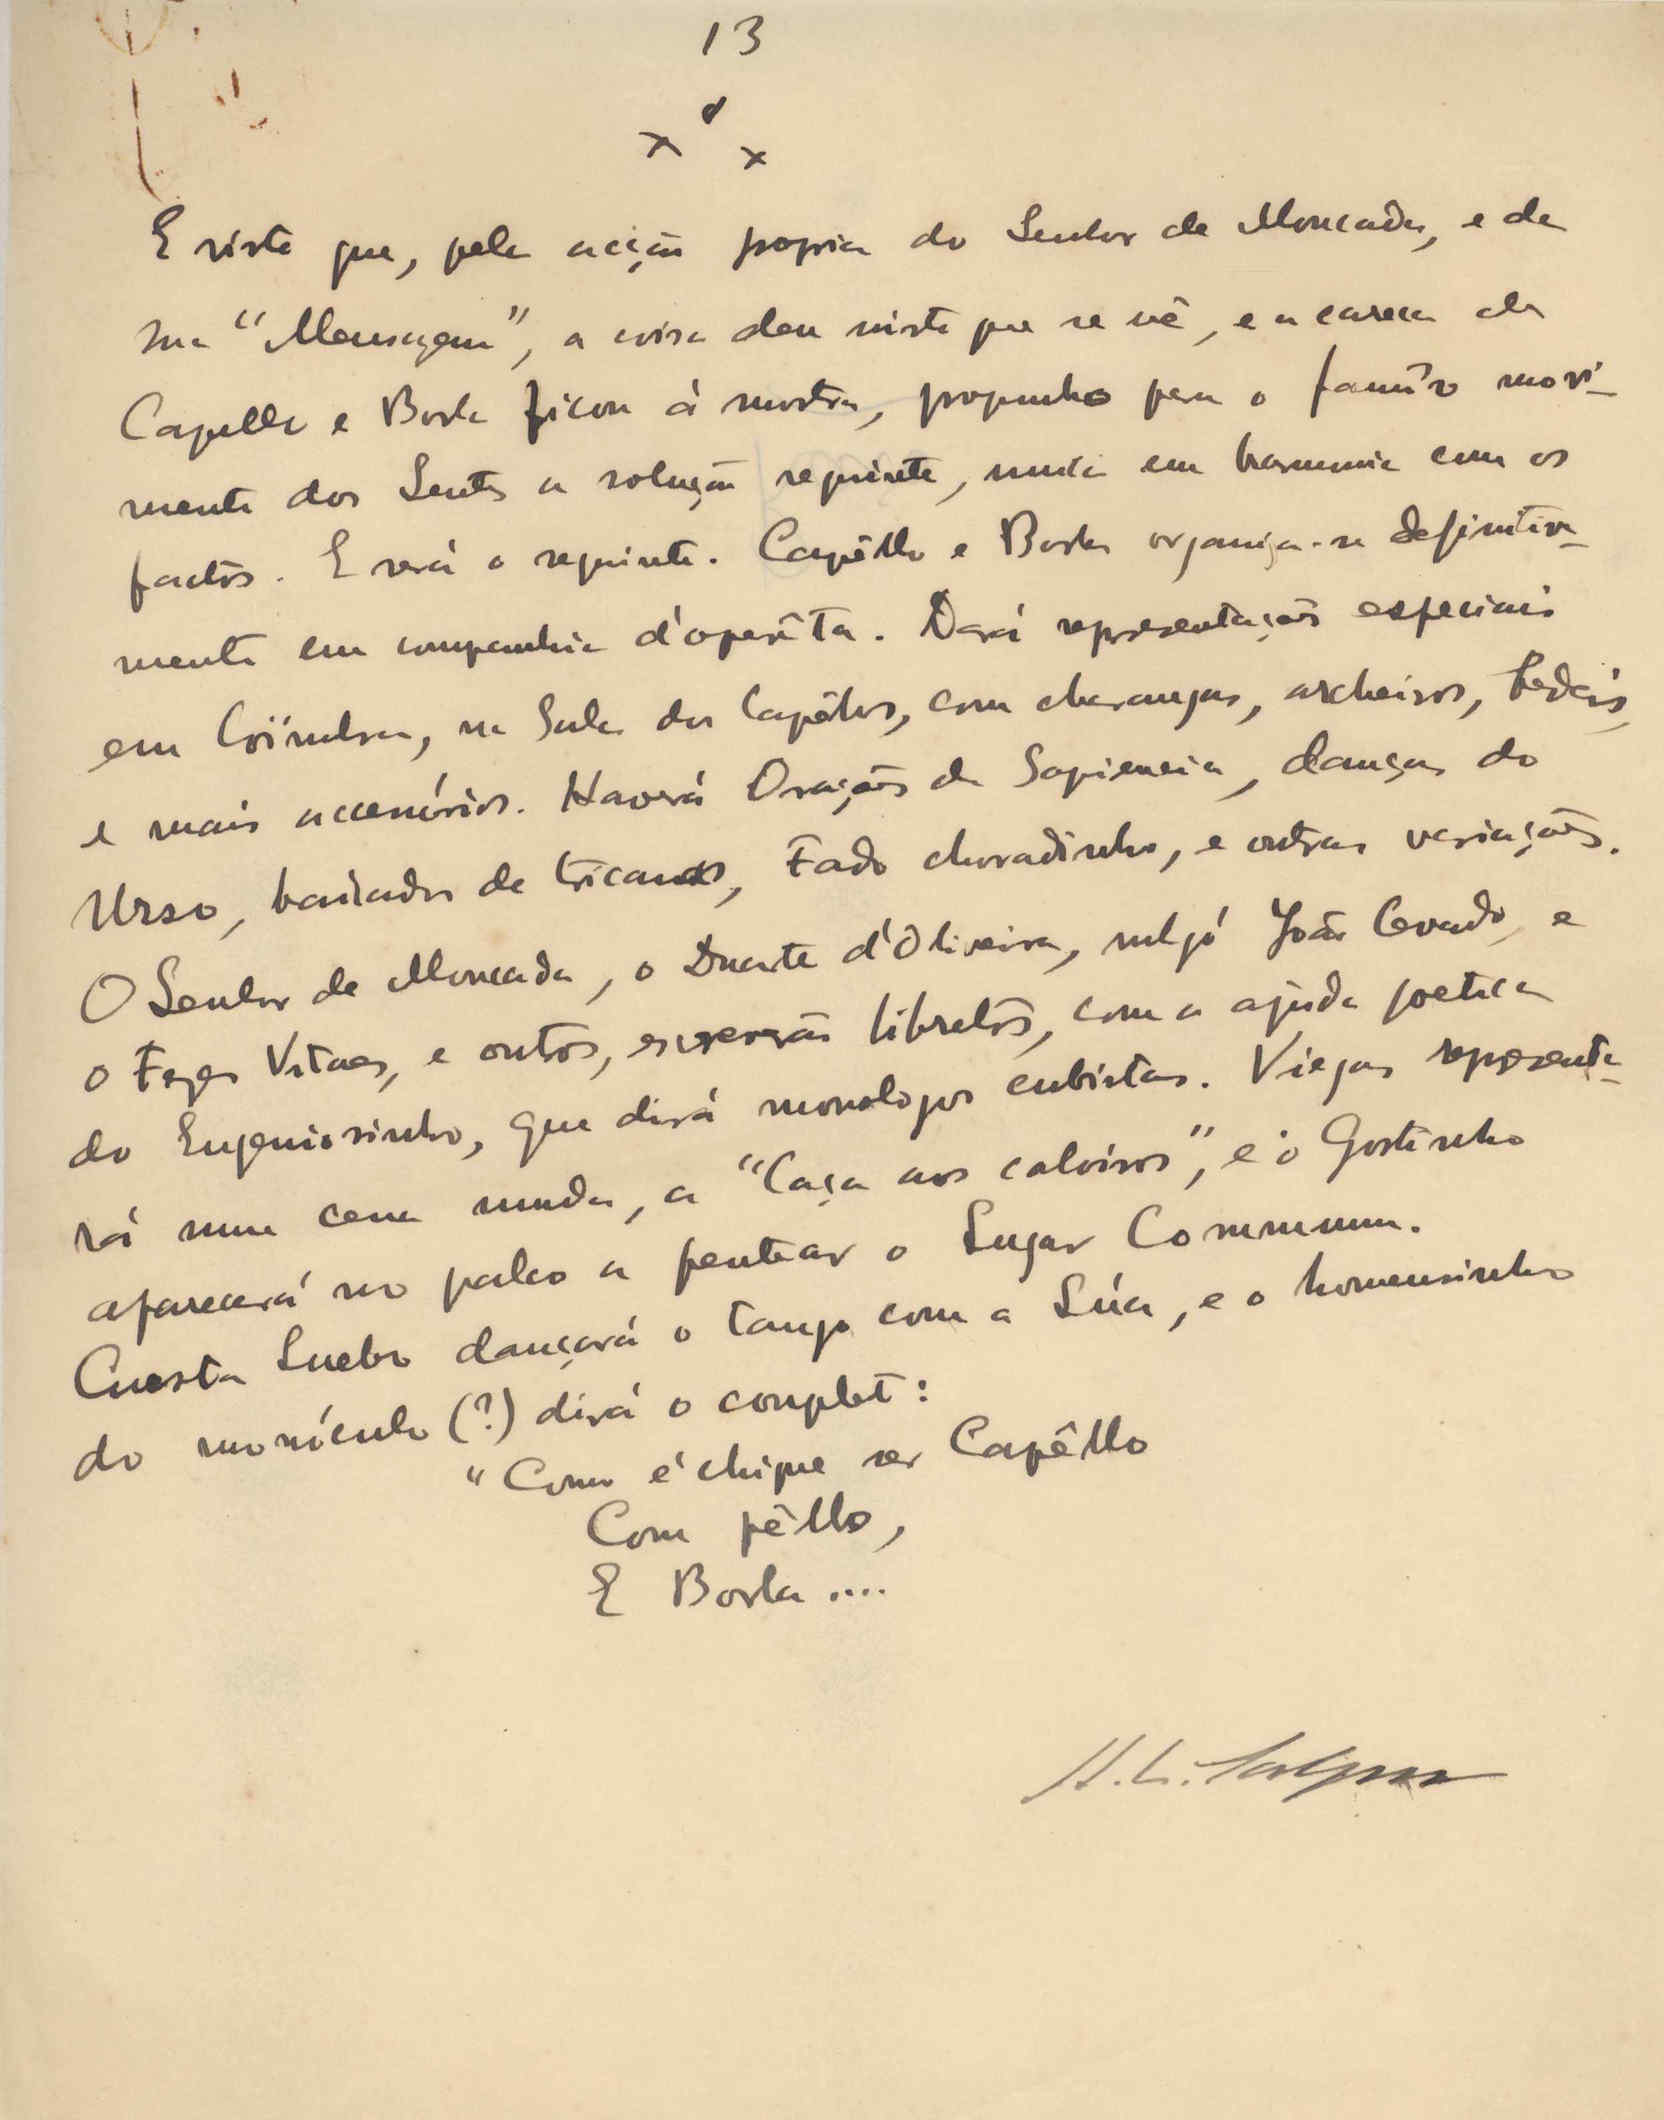 13
x x x
E visto que, pela acção propria do Senhor de Moncada, e da
sua "Mensagem", a coisa deu nisto que se vê, e a careca de
Capello e Borla ficou á mostra, proponho para o famôso movi-
mento dos Lentes a solução seguinte, muito em harmonia com os
factos. E será o seguinte. Capêllo e Borla organiza-se definitiva-
mente em companhia d'operêta. Dará representações especiais
em Coïmbra, na Sala dos Capêllos, com charangas, archeiros, bedeis,
e mais accessórios. Haverá Orações de Sapiencia, danças do
Urso, bailados de tricanas, Fado choradinho, e outras variações.
O Senhor de Moncada, o Duarte d'Oliveira, vulgó João Covado, e
o Fezas Vitaes, e outros, escreverão libretos, com a ajuda poetica
do Eugeniosinho, que dirá monologos cubistas. Viegas representa-
rá numa cena muda, a "Caça aos caloiros", e o Gostinho
aparecerá no palco a pentear o Lugar Commum.
Cuesta Suebo dançará o tango com a Súa, e o homensinho
do monóculo (?) dirá o couplet:
"Como é chique ser Capêllo
Com pêllo,
E Borla ....